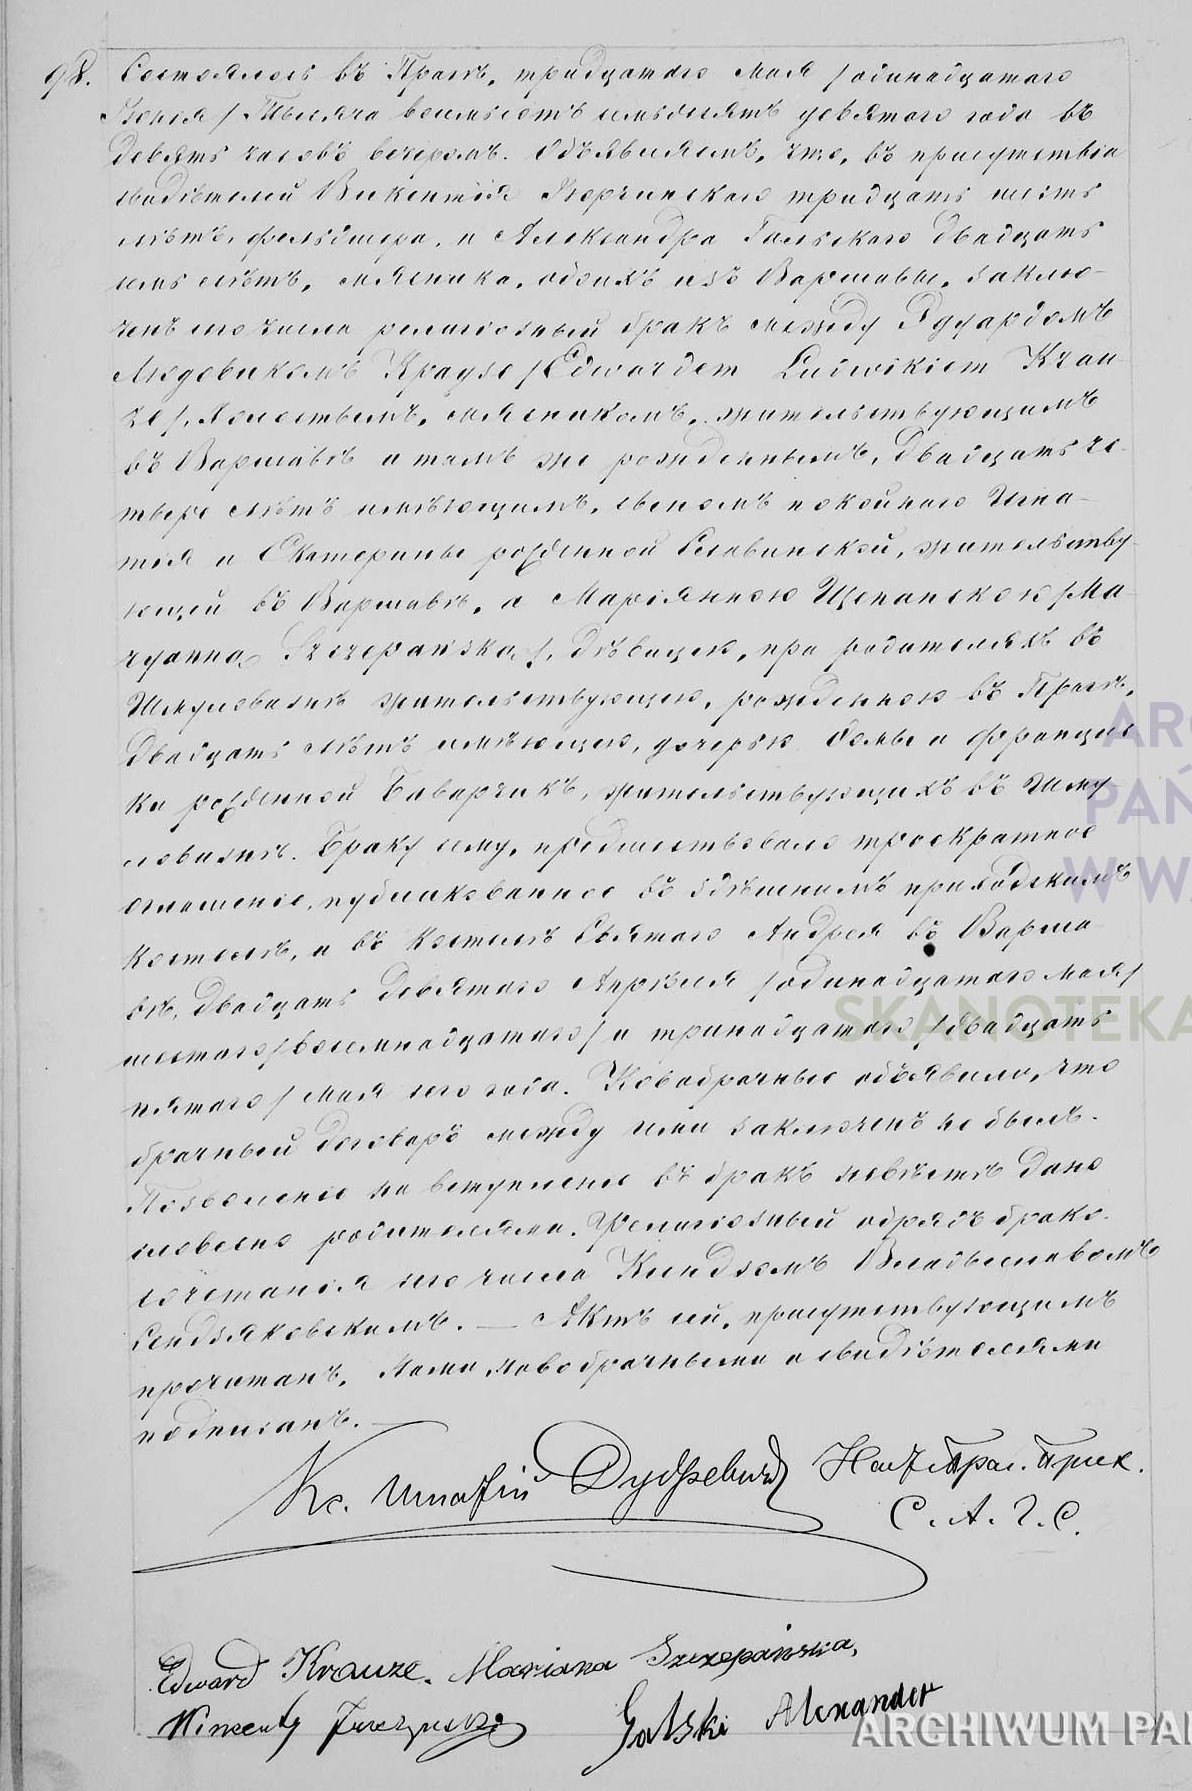 98. Состоялось въ Прагѣ, тридцатаго Мая /одинадцатаго
Іюня/ Тысяча восемьсотъ семьдесятъ девятаго года въ
девять часовъ вечеромъ. Объявляемъ, что, въ присутствіи
свидѣтелей Викентія Юрчинскаго тридцать шесть
лѣтъ, фельдшера, и Александра Гальскаго двадцать
семь лѣтъ, мясника, обоихъ изъ Варшавы, заклю-
ченъ сего числа религіозный бракъ между Эдуардомъ
Людовикомъ Краузе /Edwardem Ludwikiem Krau
ze/, холостымъ, мясникомъ, жительствующимъ
въ Варшавѣ и тамъ же рожденнымъ, двадцать че-
тыре лѣтъ имѣющимъ, сыномъ покойнаго Игна-
тія и Екатерины рожденной Славинской, жительству-
ющей въ Варшавѣ, и Маріянною Щепанскою /Ma-
ryanną Szczepańską/, дѣвицею, при родителяхъ въ
Шмуловизнѣ жительствующею, рожденною въ Прагѣ,
двадцать лѣтъ имѣющею, дочерью Фомы и Францис
ки рожденной Баварчикъ, жительствующихъ въ Шму
ловизнѣ. Браку сему, предшествовало троекратное
оглашеніе, публикованное въ здѣшнемъ приходскомъ
костелѣ, и въ костелѣ Святаго Андрея въ Варша-
вѣ, двадцать девятаго Апрѣля /одинадцатаго Мая/
шестаго /восемнадцатаго/ и тринадцатаго /двадцать
пятаго/ Мая сего года. Новобрачные объявили, что
брачный договоръ между ими заключенъ не былъ.
Позволеніе на вступленіе въ бракъ невѣстѣ дано
словесно родителями. Религіозный обрядъ брако-
сочетанія сего числа Ксендзомъ Владыславомъ
Сендзяковскимъ. — Актъ сей, присутствующимъ
прочитанъ, Нами, новобрачными и свидѣтелями
подписанъ. —
Кс. Игнатій Дудревичъ Наст. Праг. Прих.
С. А. Г. С.
Edward Krauze. Maryanna Szczepańska,
Wincenty Jurczyński Galski Alexander
ARCHIWUM PA
SKANOTEKA
AR
PAŃ
W WA